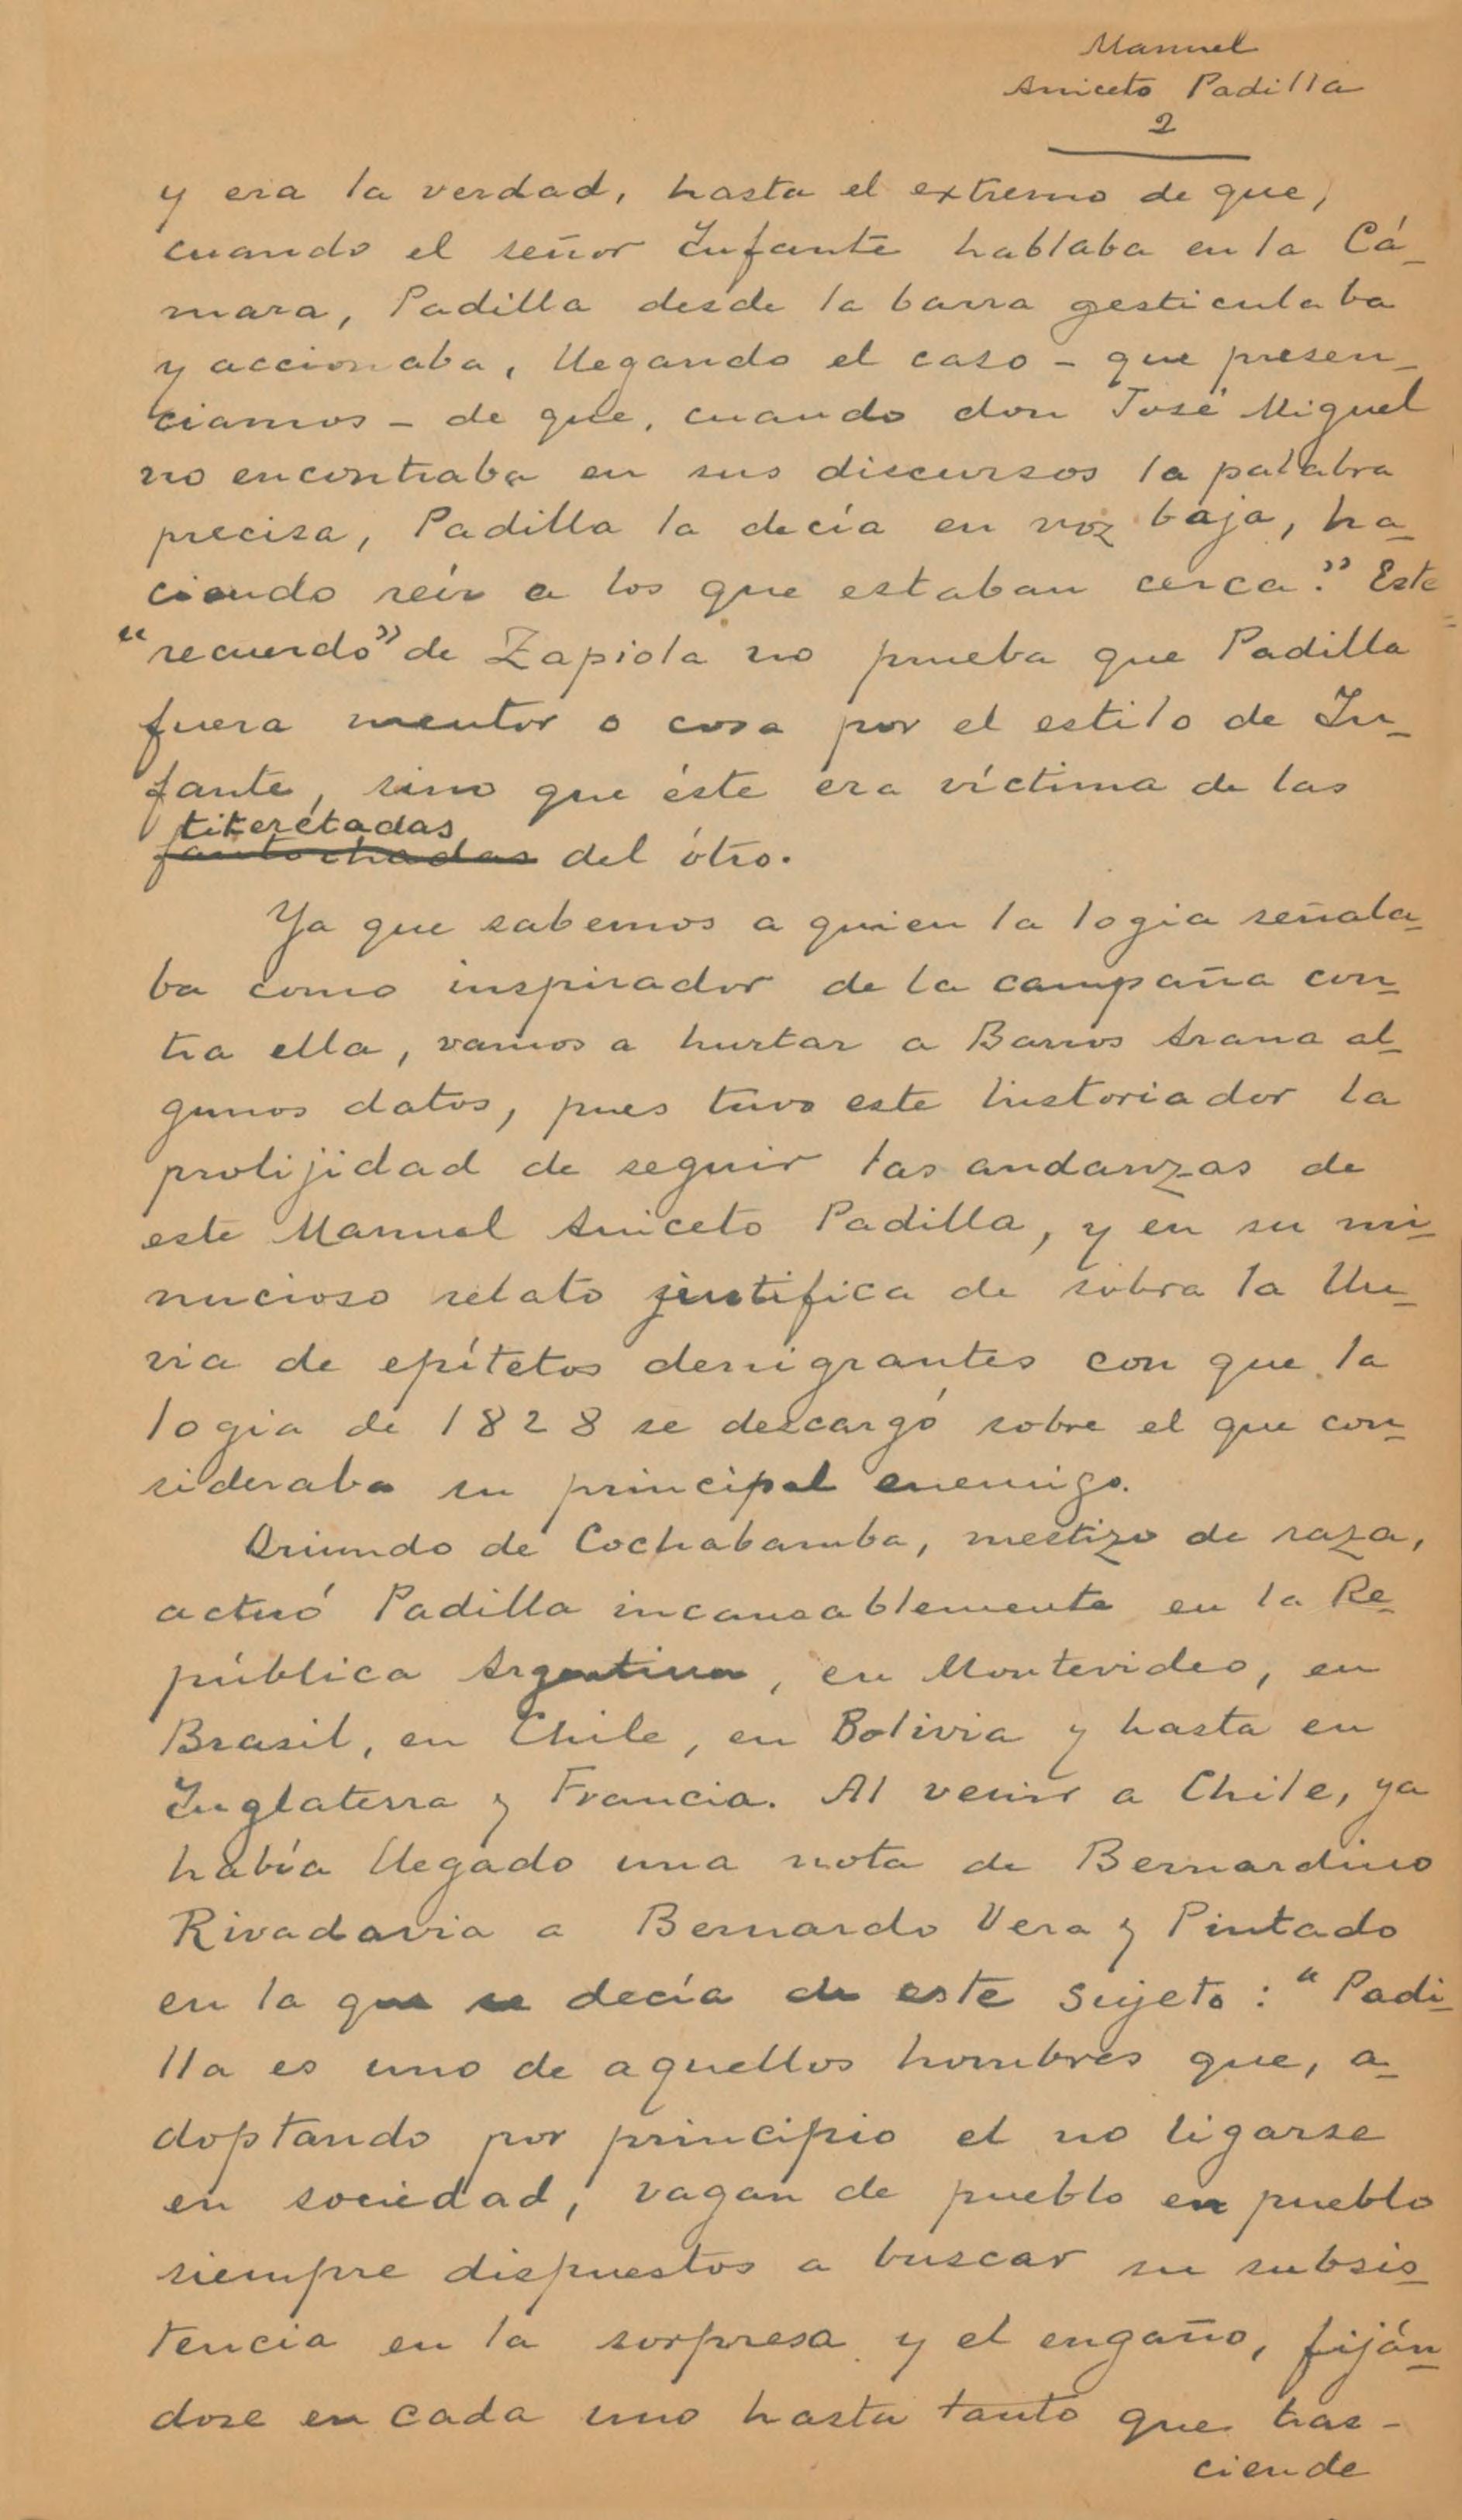 Manuel
Aniceto Padilla
2
y era la verdad, hasta el extremo de que,
cuando el señor Infante hablaba en la Cá-
mara, Padilla desde la barra gesticulaba
y accionaba, llegando el caso - que presen-
ciamos - de que, cuando don José Miguel
no encontraba en sus discursos la palabra
precisa, Padilla la decía en voz baja, ha-
ciendo reir a los que estaban cerca." Este
"recuerdo" de Zapiola no prueba que Padilla
fuera mentor o cosa por el estilo de In-
fante, sino que éste era víctima de las
titeretadas
fantochadas del ótro.
Ya que sabemos a quien la logia señala-
ba como inspirador de la campaña con-
tra ella, vamos a hurtar a Barros Arana al-
gunos datos, pues tuvo este historiador la
prolijidad de seguir las andanzas de
este Manuel Aniceto Padilla, y en su mi-
nucioso relato justifica de sobra la llu-
via de epítetos denigrantes con que la
logia de 1828 se descargó sobre el que con-
sideraba su principal enemigo.
Oriundo de Cochabamba, mestizo de raza,
actuó Padilla incansablemente en la Re-
pública Argentina, en Montevideo, en
Brasil, en Chile, en Bolivia y hasta en
Inglaterra y Francia. Al venir a Chile, ya
había llegado una nota de Bernardino
Rivadavia a Bernardo Vera y Pintado
en la que se decía de este sujeto: "Padi-
lla es uno de aquellos hombres que, a-
doptando por principio el no ligarse
en sociedad, vagan de pueblo en pueblo
siempre dispuestos a buscar su subsis-
tencia en la sorpresa y el engaño, fiján-
dose en cada uno hasta tanto que tras-
ciende